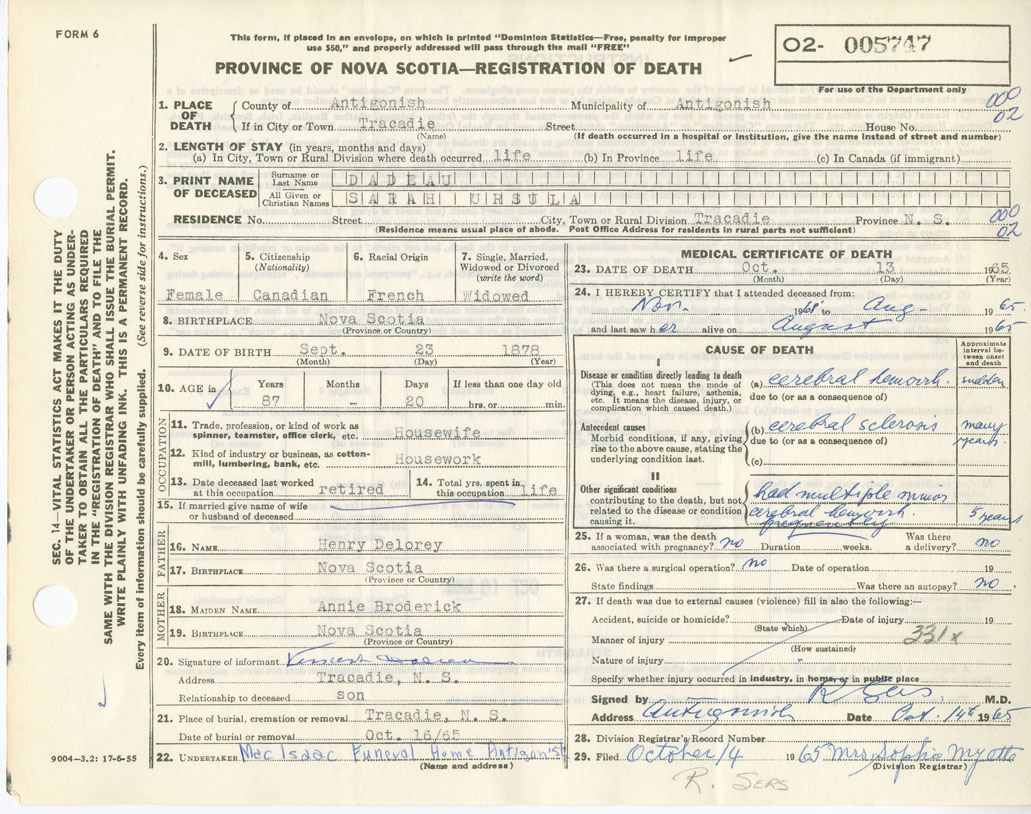 FORM 6
This form, if placed in an envelope, on which is printed "Dominion Statistics—Free, penalty for improper
use $50," and properly addressed will pass through the mail "FREE"
02- 005747
PROVINCE OF NOVA SCOTIA—REGISTRATION OF DEATH
For use of the Department only
1. PLACE OF DEATH County of Antigonish Municipality of Antigonish 000
If in City or Town Tracadie Street House No. 02
(Name) (If death occurred in a hospital or institution, give the name instead of street and number)
2. LENGTH OF STAY (in years, months and days)
(a) In City, Town or Rural Division where death occurred life (b) In Province life (c) In Canada (if immigrant)
3. PRINT NAME OF DECEASED Surname or Last Name DADEAU
All Given or Christian Names SARAH URSULA
RESIDENCE No. Street City, Town or Rural Division Tracadie Province N. S. 000
(Residence means usual place of abode. Post Office Address for residents in rural parts not sufficient) 02
SEC. 14—VITAL STATISTICS ACT MAKES IT THE DUTY
OF THE UNDERTAKER OR PERSON ACTING AS UNDER-
TAKER TO OBTAIN ALL THE PARTICULARS REQUIRED
IN THE "REGISTRATION OF DEATH" AND TO FILE THE
SAME WITH THE DIVISION REGISTRAR WHO SHALL ISSUE THE BURIAL PERMIT.
WRITE PLAINLY WITH UNFADING INK. THIS IS A PERMANENT RECORD.
Every item of information should be carefully supplied. (See reverse side for instructions.)
4. Sex 5. Citizenship (Nationality) 6. Racial Origin 7. Single, Married, Widowed or Divorced (write the word)
Female Canadian French Widowed
8. BIRTHPLACE Nova Scotia
(Province or Country)
9. DATE OF BIRTH Sept. 23 1878
(Month) (Day) (Year)
10. AGE in Years Months Days If less than one day old
87 - 20 hrs. or min.
OCCUPATION
11. Trade, profession, or kind of work as
spinner, teamster, office clerk, etc. Housewife
12. Kind of industry or business, as cotton-
mill, lumbering, bank, etc. Housework
13. Date deceased last worked at this occupation retired 14. Total yrs. spent in this occupation life
15. If married give name of wife
or husband of deceased
FATHER
16. NAME Henry Delorey
17. BIRTHPLACE Nova Scotia
(Province or Country)
MOTHER
18. MAIDEN NAME Annie Broderick
19. BIRTHPLACE Nova Scotia
(Province or Country)
20. Signature of informant Vincent
Address Tracadie, N. S.
Relationship to deceased son
21. Place of burial, cremation or removal Tracadie, N. S.
Date of burial or removal Oct. 16/65
22. UNDERTAKER Mac Isaac Funeral Home Antigonish
(Name and address)
9004—3.2: 17-6-55
MEDICAL CERTIFICATE OF DEATH
23. DATE OF DEATH Oct. 13 1965
(Month) (Day) (Year)
24. I HEREBY CERTIFY that I attended deceased from:
Nov. to Aug. 1965
and last saw her alive on August 1965
CAUSE OF DEATH
Approximate interval between onset and death
I
Disease or condition directly leading to death
(This does not mean the mode of
dying, e.g., heart failure, asthenia,
etc. It means the disease, injury, or
complication which caused death.)
(a) cerebral hemorrh. sudden
due to (or as a consequence of)
Antecedent causes
Morbid conditions, if any, giving
rise to the above cause, stating the
underlying condition last.
(b) cerebral sclerosis many years
due to (or as a consequence of)
(c)
II
Other significant conditions
contributing to the death, but not
related to the disease or condition
causing it.
had multiple minor
cerebral hemorrh. 5 years
25. If a woman, was the death associated with pregnancy? no Duration weeks. Was there a delivery? no
26. Was there a surgical operation? no Date of operation 19
State findings Was there an autopsy? no
27. If death was due to external causes (violence) fill in also the following:—
Accident, suicide or homicide? Date of injury 19
(State which)
Manner of injury 331x
(How sustained)
Nature of injury
Specify whether injury occurred in industry, in home, or in public place
Signed by R Sers M.D.
Address Antigonish Date Oct. 14th 1965
28. Division Registrar's Record Number
29. Filed October 14 1965 Mrs Sophie Myette
(Division Registrar)
R. SERS